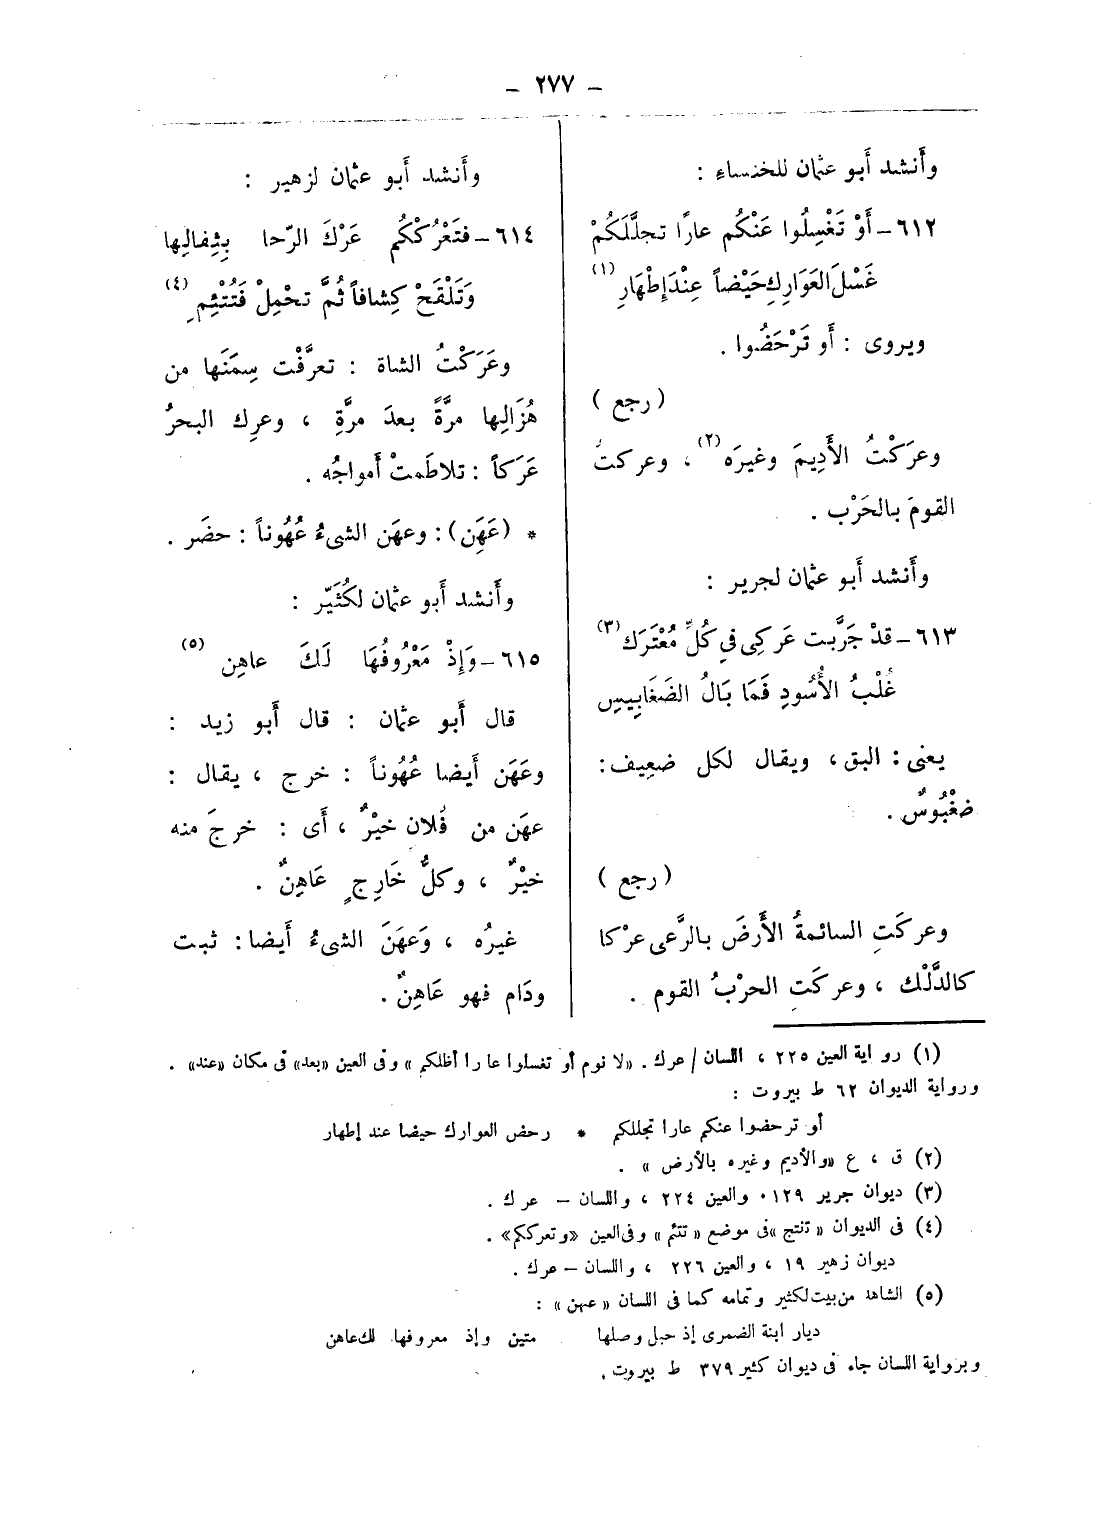 – ٢٧٧ –
وأَنشد أَبو عثمان للخنساءِ :
٦١٢ – أَوْ تَغْسِلُوا عَنْكُم عارًا تجلَّلَكُمْ
غَسْلَ العَوَارِكِ حَيْضاً عِنْدَ إِطْهَارِ (١)
ويروى : أَو تَرْحَضُوا .
( رجع )
وعرَكْتُ الأَدِيمَ وغيرَه (٢) ، وعركتُ
القومَ بالحَرْب .
وأَنشد أَبو عثمان لجرير :
٦١٣ – قدْ جَرَّبت عَركِى فى كُلِّ مُعْتَرَك (٣)
غُلْبُ الأُسُودِ فَمَا بَالُ الضَغَابِيسِ
يعنى : البق ، ويقال لكل ضعِيف :
ضغْبُوسٌ .
( رجع )
وعركَتِ السائمةُ الأَرضَ بالرَّعى عرْكا
كالدَّلْك ، وعركَتِ الحرْبُ القوم .
وأَنشد أَبو عثمان لزهير :
٦١٤ – فتَعْرُكْكُم عَرْكَ الرّحا بِثِفالِها
وَتَلْقَحْ كِشافاً ثُمَّ تحْمِلْ فَتُتْئِمِ (٤)
وعَرَكْتُ الشاة : تعرَّفْت سِمَنَها من
هُزَالِها مرَّةً بعدَ مرَّةِ ، وعرِك البحرُ
عَرَكاً : تلاطَمتْ أَمواجُه .
* (عَهَِن) : وعهَن الشىءُ عُهُوناً : حضَر .
وأَنشد أَبو عثمان لكُثَيّر :
٦١٥ – وَإِذْ مَعْرُوفُهَا لَكَ عاهِن (٥)
قال أَبو عثمان : قال أَبو زيد :
وعَهَن أَيضا عُهُوناً : خرج ، يقال :
عهَن من فُلان خيْرٌ ، أَى : خرجَ منه
خيْرٌ ، وكلُّ خَارِجٍ عَاهِنٌ .
غيرُه ، وَعهَنَ الشىءُ أَيضا : ثبت
ودَام فهو عَاهِنٌ .
(١) رواية العين ٢٢٥ ، اللسان / عرك . «لا نوم أو تغسلوا عارا أظلكم» وفى العين «بعد» فى مكان «عند» .
ورواية الديوان ٦٢ ط بيروت :
أو ترحضوا عنكم عارا تجللكم * رحض العوارك حيضا عند إطهار
(٢) ق ، ع «والأديم وغيره بالأرض» .
(٣) ديوان جرير ١٢٩ والعين ٢٢٤ ، واللسان – عرك .
(٤) فى الديوان «تنتج» فى موضع «تتئم» وفى العين «وتعرككم» .
ديوان زهير ١٩ ، والعين ٢٢٦ ، واللسان – عرك .
(٥) الشاهد من بيت لكثير وتمامه كما فى اللسان «عهن» :
ديار ابنة الضمرى إذ حبل وصلها متين وإذ معروفها لك عاهن
وبرواية اللسان جاء فى ديوان كثير ٣٧٩ ط بيروت .